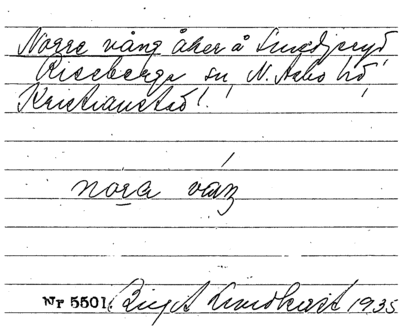 Norre vång åker å Smedjeryd
Riseberga sn, N. Åsbo hd
Kristianstad!
nora váŋ
Nr 5501 Birgit Lindkvist 1935